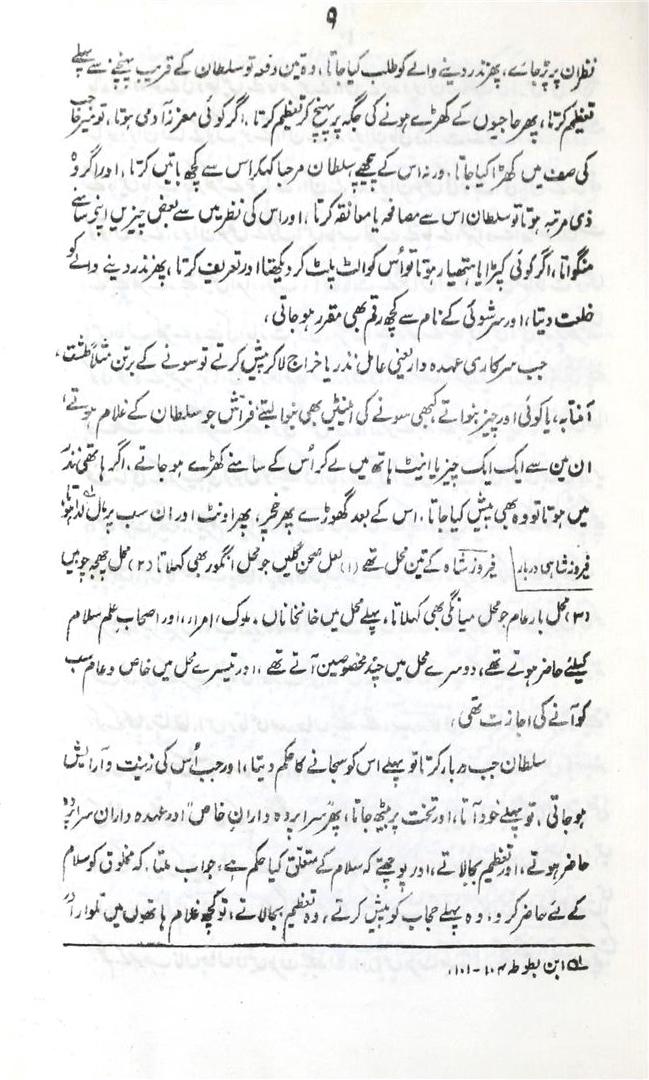 ۹
نظر ان پر پڑ جائے، پھر نذر دینے والے کو طلب کیا جاتا، وہ تین دفعہ تو سلطان کے قریب پہنچنے سے پہلے
تعظیم کرتا، پھر حاجیوں کے کھڑے ہونے کی جگہ پر پہنچ کر تعظیم کرتا، اگر کوئی معزز آدمی ہوتا، تو میر حاجب
کی صف میں کھڑا کیا جاتا، ورنہ اس کے پیچھے، سلطان مرحبا کہکر اس سے کچھ باتیں کرتا، اور اگر وہ
ذی مرتبہ ہوتا تو سلطان اس سے مصافحہ یا معانقہ کرتا، اور اس کی نظر میں سے بعض چیزیں اپنے سامنے
منگواتا، اگر کوئی کپڑا یا ہتھیار ہوتا تو اُس کو الٹ پلٹ کر دیکھتا اور تعریف کرتا، پھر نذر دینے والے کو
خلعت دیتا، اور سر شوئی کے نام سے کچھ رقم بھی مقرر ہو جاتی،
جب سرکاری عہدہ دار یعنی عامل نذر یا خراج لا کر پیش کرتے تو سونے کے برتن مثلاً طشت،
آفتابہ، یا کوئی اور چیز بنواتے، کبھی سونے کی اینٹیں بھی بنوا لیتے، فراش جو سلطان کے غلام ہوتے،
ان میں سے ایک ایک چیز یا اینٹ ہاتھ میں لے کر اُس کے سامنے کھڑے ہو جاتے، اگر ہاتھی نذر
میں ہوتا تو وہ بھی پیش کیا جاتا، اس کے بعد گھوڑے پھر خچر، پھر اونٹ اور ان سب پر مال لدا ہوتا
فیروز شاہی دربار فیروز شاہ کے تین محل تھے (۱) محل صحن گلیں جو محل انگور بھی کہلاتا (۲) محل چھجہ چوبیں
(۳) محل بار عام جو محل میانگی بھی کہلاتا، پہلے محل میں خانخاناں، ملوک، امراء، اور اصحاب علم سلام
کیلئے حاضر ہوتے تھے، دوسرے محل میں چند مخصوصین آتے تھے، اور تیسرے محل میں خاص و عام سب
کو آنے کی اجازت تھی،
سلطان جب دربار کرتا تو پہلے اس کو سجانے کا حکم دیتا، اور جب اُس کی زینت و آرایش
ہو جاتی، تو پہلے خود آتا، اور تخت پر بیٹھ جاتا، پھر سراپردہ داران خاص اور عہدہ داران سراپردہ
حاضر ہوتے، اور تعظیم بجا لاتے، اور پوچھتے کہ سلام کے متعلق کیا حکم ہے، جواب ملتا، کہ مخلوق کو سلام
کے لئے حاضر کرو، وہ پہلے حجاب کو پیش کرتے، وہ تعظیم بجا لاتے، تو کچھ غلام ہاتھوں میں تلوار اور
لہ ابن بطوطہ ۱۰۴-۱۰۱،